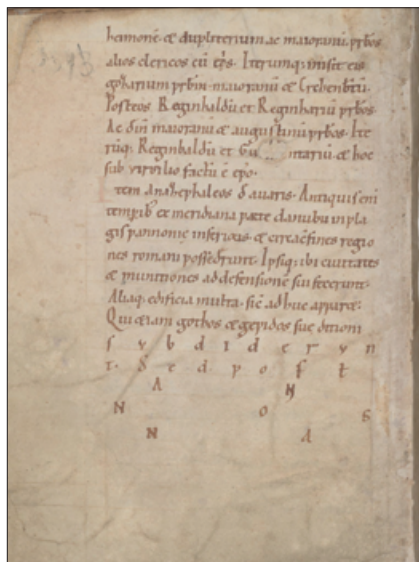 hemonē & dupliterium ac maioranū prbos
alios clericos cū ip̄s. Iterumq; misit eis
gozharium prbm̄ maioranū & Erchenbtū.
Posteos. Reginbaldū et Reginhariū prbos
Ac dein̄ maioranū & augustinū prbos. Ite
rūq; Reginbaldū et Gū ntariū & hoc
sub virgilio factū ē epo.
tem Anachephaleos d̄ auaris. Antiquis eni
temprib; ex meridiana parte danubii in pla
gis pannonię inferioris & circa c̄fines regio
nes romani possederunt. Ipsiq; ibi ciuitates
& munitiones ad defensionē sui fecerunt.
Aliaq; edificia multa. sic̄ adhuc apparet.
Qui etiam gothos & gepidos suę ditioni
s v b d i d e r v n
t. S e d p o s t
A N
N O S
N A